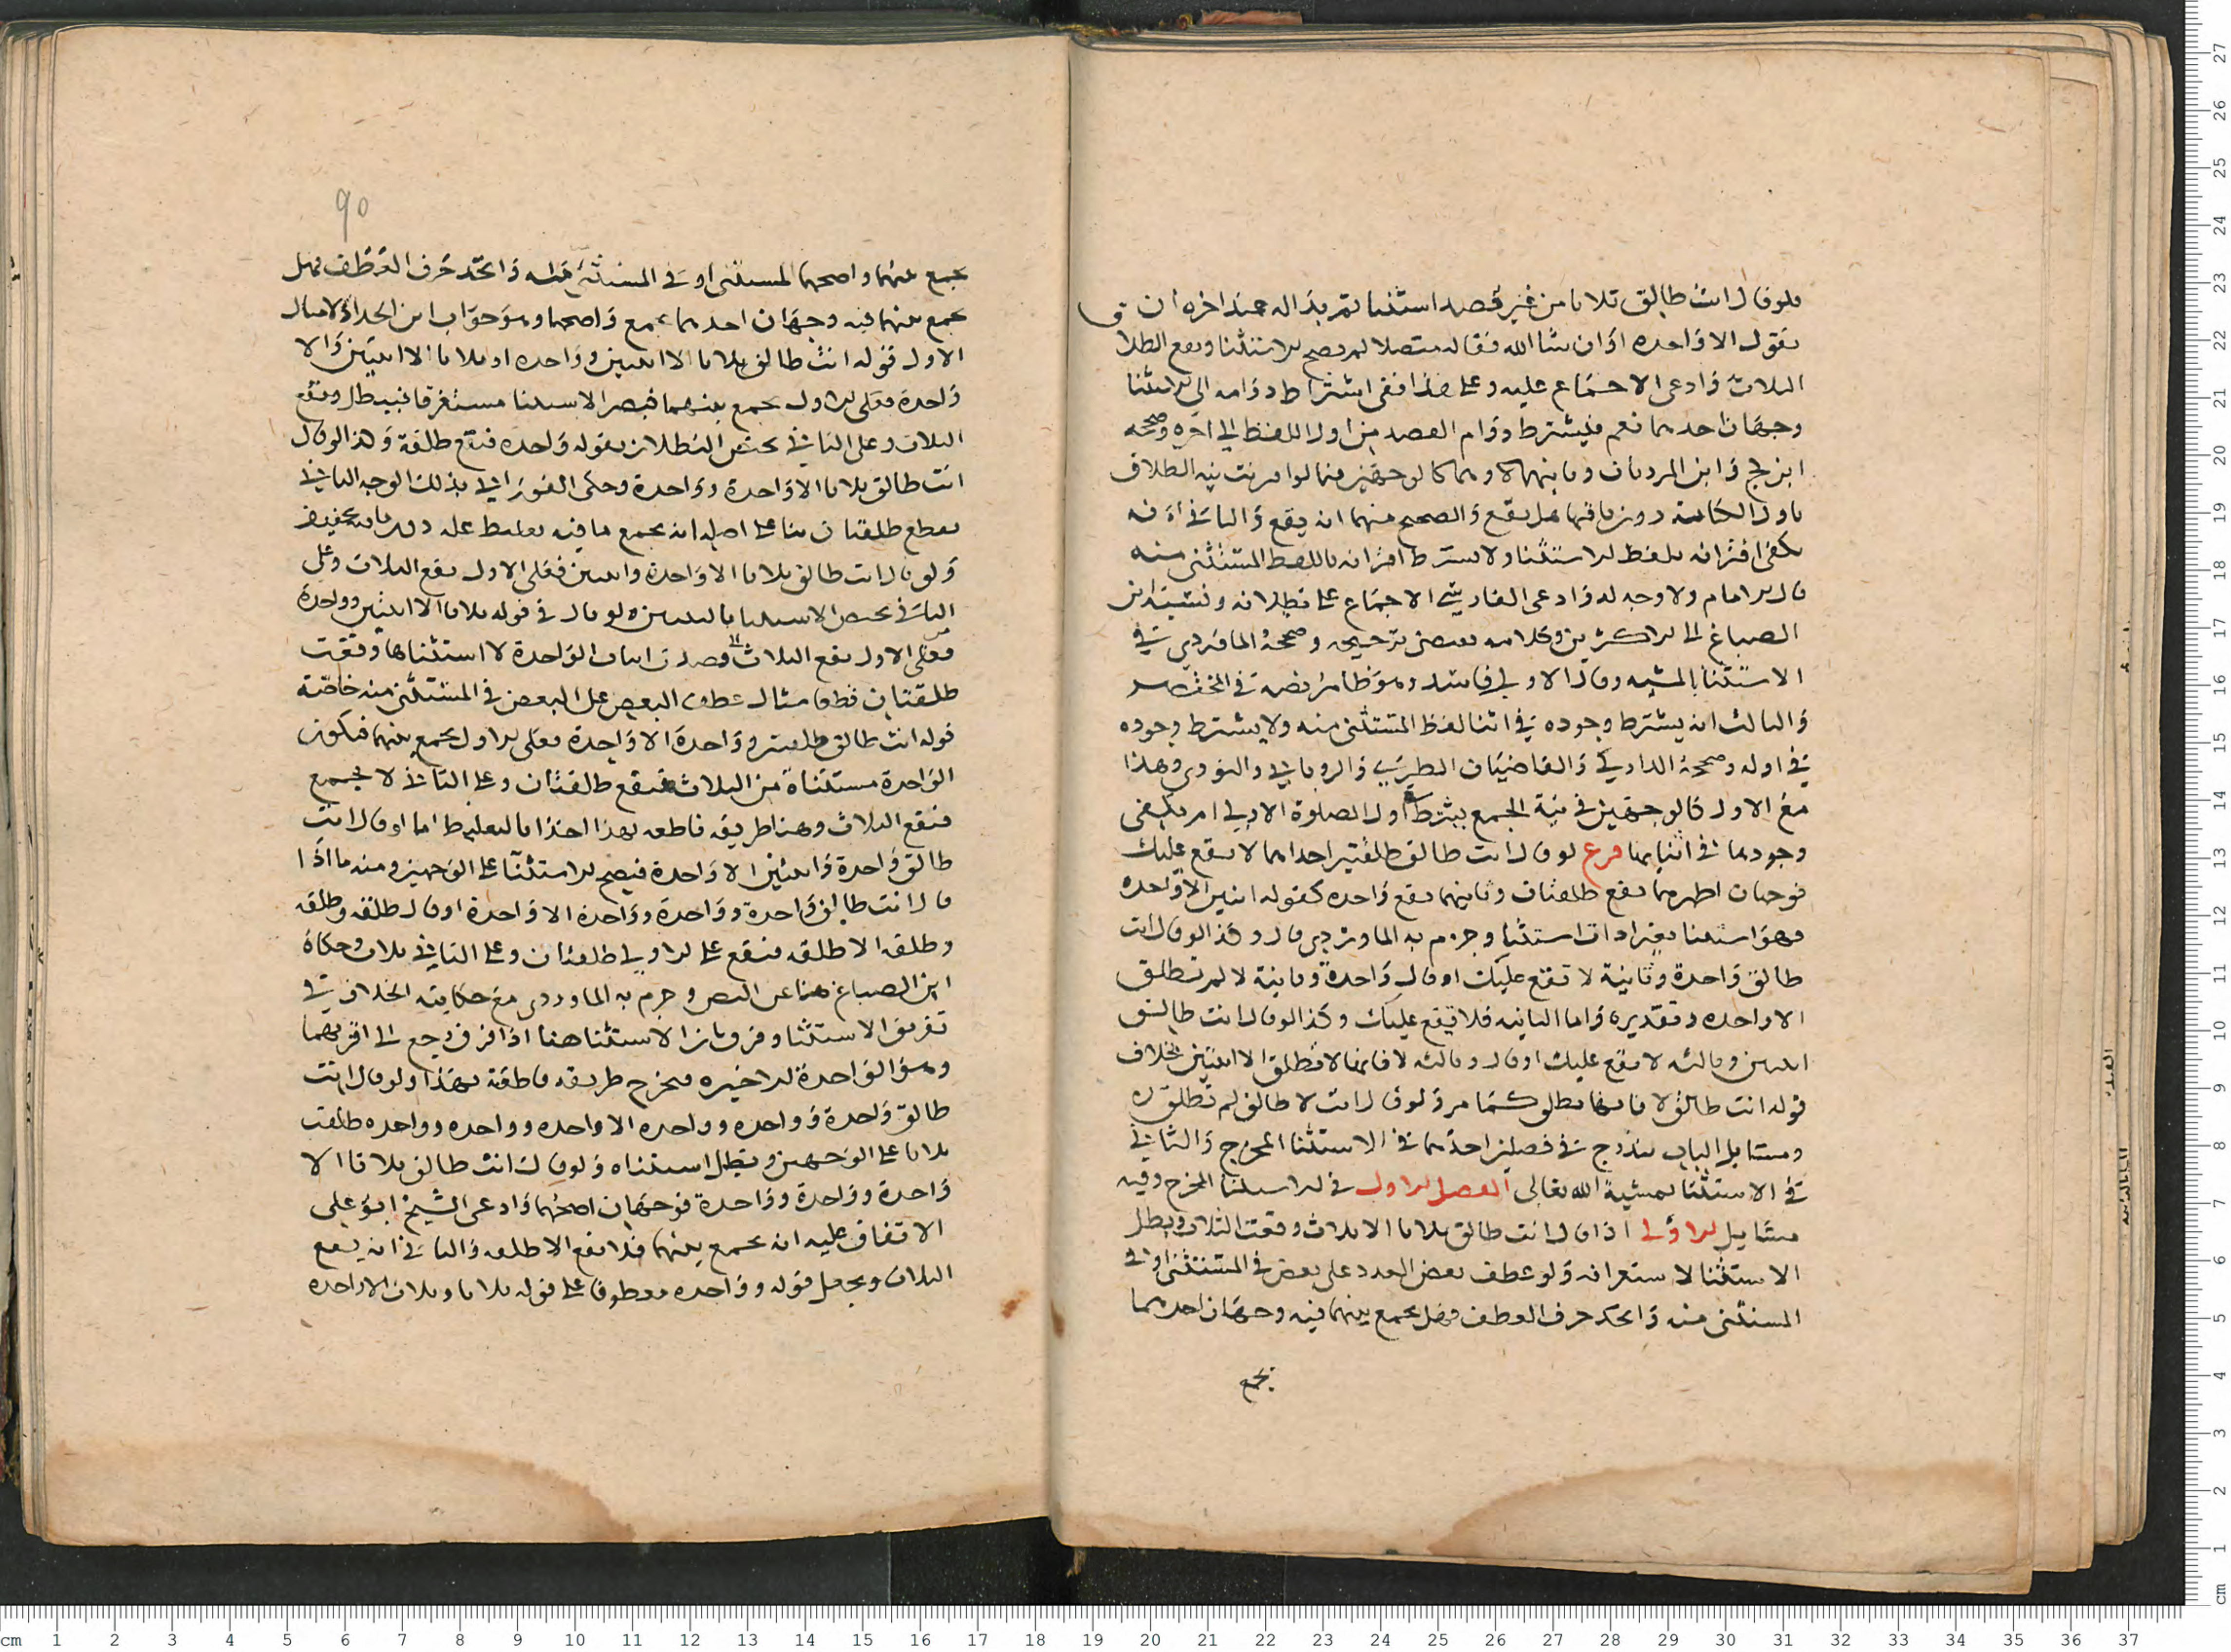 فلو قال انت طالق ثلاثا من غير قصد استثنا ثم بدا له عند اخره ان
يقول الا واحده او ان شا الله فقاله متصلا لم يصح الاستثنا ويقع الطلا ق
الثلاث وادعى الاجماع عليه وعلى هذا ففي اشتراط دوامه الى الاستثنا
وجهان احدهما نعم فيشترط دوام القصد من اول اللفظ الى اخره وصححه
ابن كج وابن المرزبان وثانيهما لا وهما كالوجهين فيما لو اقرنت نية الطلاق
باول الكناية دون باقيها هل يقع والصحيح منهما انه يقع والثاني انه
يكفي اقترانه بلفظ الاستثنا ولا يشترط اقترانه باللفظ المستثنى منه
قال الامام ولا وجه له وادعى الفارسي الاجماع على بطلانه ونسبه ابن
الصباغ الى الاكثرين وكلامه يقتضي ترجيحه وصححه الماوردي في
الاستثنا بالمشيه وقال الاول فاسد وهو ظاهر نصه في المختصر
والثالث انه يشترط وجوده في اثنا لفظ المستثنى منه ولا يشترط وجوده
في اوله وصححه الدارمي والقاضيان الطبري والروياني والنووي وهذا
مع الاول كالوجهين في نية الجمع بشرط اول الصلوة الاولى ام يكفي
وجودها في اثنايها فرع لو قال انت طالق طلقتين احداهما لا تقع عليك
فوجهان اظهرهما تقع طلقتان وثانيهما تقع واحده كقوله اثنين الا واحده
فهو استثنا بغير ادات استثنا وجزم به الماوردي قال وكذا لو قال انت
طالق واحدة وثانية لا تقع عليك او قال واحدة وثانية لا لم تطلق
الا واحده وتقديره واما الثانيه فلا تقع عليك وكذا لو قال انت طالق
اثنتين وثالثه لا تقع عليك او قال وثالثه لا فانها لا تطلق الا اثنتين بخلاف
قوله انت طالق لا فانها تطلق كما مر ولو قال انت لا طالق لم تطلق
ومسايل الباب تندرج في فصلين احدهما في الاستثنا المخرج والثاني
في الاستثنا بمشية الله تعالى الفصل الاول في الاستثنا المخرج وفيه
مسايل الاولى اذا قال انت طالق ثلاثا الا ثلاثا وقعت الثلاث ويبطل
الاستثنا لاستغراقه ولو عطف بعض العدد على بعض في المستثنى او في
المستثنى منه واتحد حرف العطف فهل يجمع بينهما فيه وجهان احدهما
يجمع
90
يجمع بينهما واصحهما المستثنى او في المستثنى منه واتحد حرف العطف فهل
يجمع بينهما فيه وجهان احدهما يجمع واصحهما وهو جواب ابن الحداد لا مثال
الاول قوله انت طالق ثلاثا الا اثنتين وواحده او ثلاثا الا اثنتين والا
واحدة فعلى الاول يجمع بينهما فيصير الاستثنا مستغرقا فيبطل وتقع
الثلاث وعلى الثاني يختص البطلان بقوله وواحده فتقع طلقة وكذا لو قال
انت طالق ثلاثا الا واحدة وواحدة وحكى الفوراني بذلك الوجه الثاني
بقطع طلقتان بنا على اصله انه يجمع ما فيه تغليظ عليه دون ما فيه تخفيف
ولو قال انت طالق ثلاثا الا واحدة واثنتين فعلى الاول تقع الثلاث وعلى
الثاني يختص الاستثنا بالثنتين ولو قال في قوله ثلاثا الا اثنتين وواحدة
فعلى الاول تقع الثلاث قصدت اثبات الواحدة لا استثناها وقعت
طلقتان قطعا مثال عطف البعض على البعض في المستثنى منه خاصة
قوله انت طالق طلقتين وواحدة الا واحدة فعلى الاول يجمع بينهما فتكون
الواحدة مستثناة من الثلاث فتقع طلقتان وعلى الثاني لا يجمع
فتقع الثلاث وهنا طريقه قاطعه بهذا اخذا بالتغليظ اما لو قال انت
طالق واحدة واثنتين الا واحدة فيصح الاستثنا على الوجهين ومنه ما اذا
قال انت طالق واحدة وواحدة وواحدة الا واحدة او قال طلقه وطلقه
وطلقه الا طلقه فتقع على الاول طلقتان وعلى الثاني ثلاث وحكاه
ابن الصباغ هنا عن النص وجزم به الماوردي مع حكايته الخلاف في
تفريق الاستثنا وفرق بان الاستثنا هنا اذا فرق رجع الى اقربهما
وهو الواحدة الاخيره فخرج طريقه قاطعة بهذا ولو قال انت
طالق واحدة وواحده وواحده الا واحده وواحده وواحده طلقت
ثلاثا على الوجهين وبطل استثناه ولو قال انت طالق ثلاثا الا
واحدة وواحدة وواحدة فوجهان اصحهما وادعى الشيخ ابو على
الاتفاق عليه انه يجمع بينهما فلا تقع الا طلقه والثاني انه يقع
الثلاث ويجعل قوله وواحده معطوفا على قوله ثلاثا وثلاث الا واحده